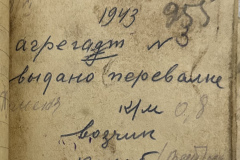 1943 955
агрегадт N 3
выдано перевалке
к/м 0,8
возчик